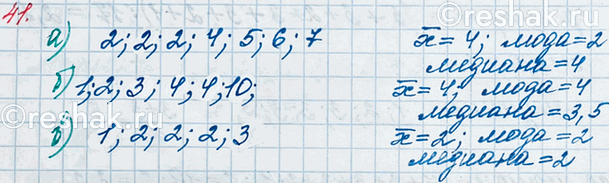 41.
а) 2; 2; 2; 4; 5; 6; 7 x̅ = 4; мода = 2
медиана = 4
б) 1; 2; 3; 4; 4; 10; x̅ = 4; мода = 4
медиана = 3,5
в) 1; 2; 2; 2; 3 x̅ = 2; мода = 2
медиана = 2